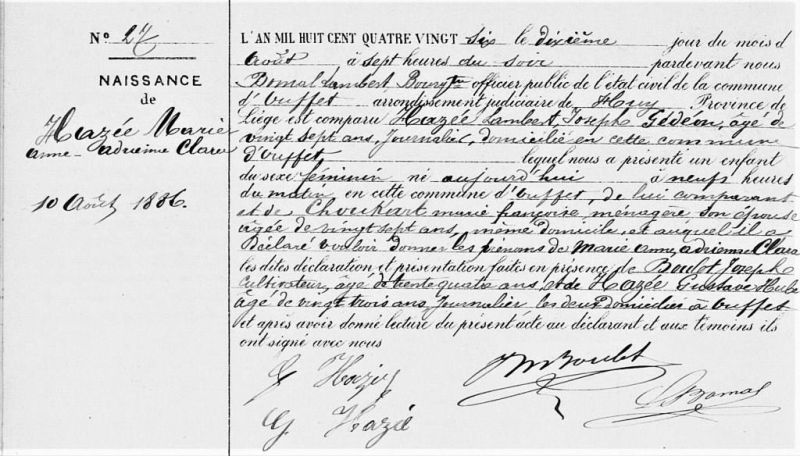 N° 27
NAISSANCE
de
Hazée Marie
anne adrienne Clara
10 Août 1886.
L'AN MIL HUIT CENT QUATRE VINGT six le dixième jour du mois d
Août, à sept heures du soir pardevant nous
Bomal Lambert, Bourgtre officier public de l'état civil de la commune
d'Ouffet, arrondissement judiciaire de Huy, Province de
Liége est comparu Hazée Lambert, Joseph Gédéon, âgé de
vingt sept ans, Journalier, domicilié en cette commune
d'Ouffet, lequel nous a présenté un enfant
du sexe féminin né aujourd'hui à neuf heures
du matin en cette commune d'Ouffet, de lui comparant
et de marie françoise, ménagère son épouse
âgée de vingt sept ans, même domicile, et auquel il a
Déclaré vouloir donner les prénoms de Marie anne, adrienne Clara
les dites déclaration et présentation faites en présence de Boulet Joseph
cultivateur, âgé de trente quatre ans et de Hazée Gustave
âgé de vingt trois ans, Journalier les deux Domiciliés à Ouffet
et après avoir donné lecture du présent acte au déclarant et aux témoins ils
ont signé avec nous
G Hazée
Boulet
L Bomal
G Hazée